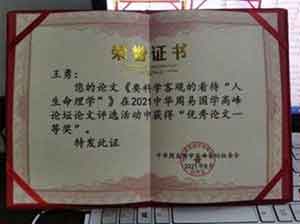 荣誉证书
王勇：
您的论文《要科学客观的看待“人
生命理学”》在2021中华周易国学高峰
论坛论文评选活动中获得“优秀论文一
等奖”。
特发此证
2021年